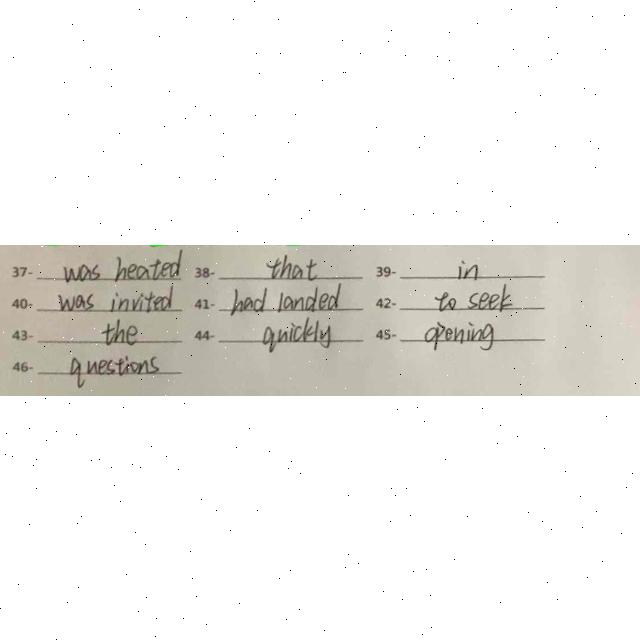 37- was heated 38- that 39- in
40- was invited 41- had landed 42- to seek
43- the 44- quickly 45- opening
46- questions